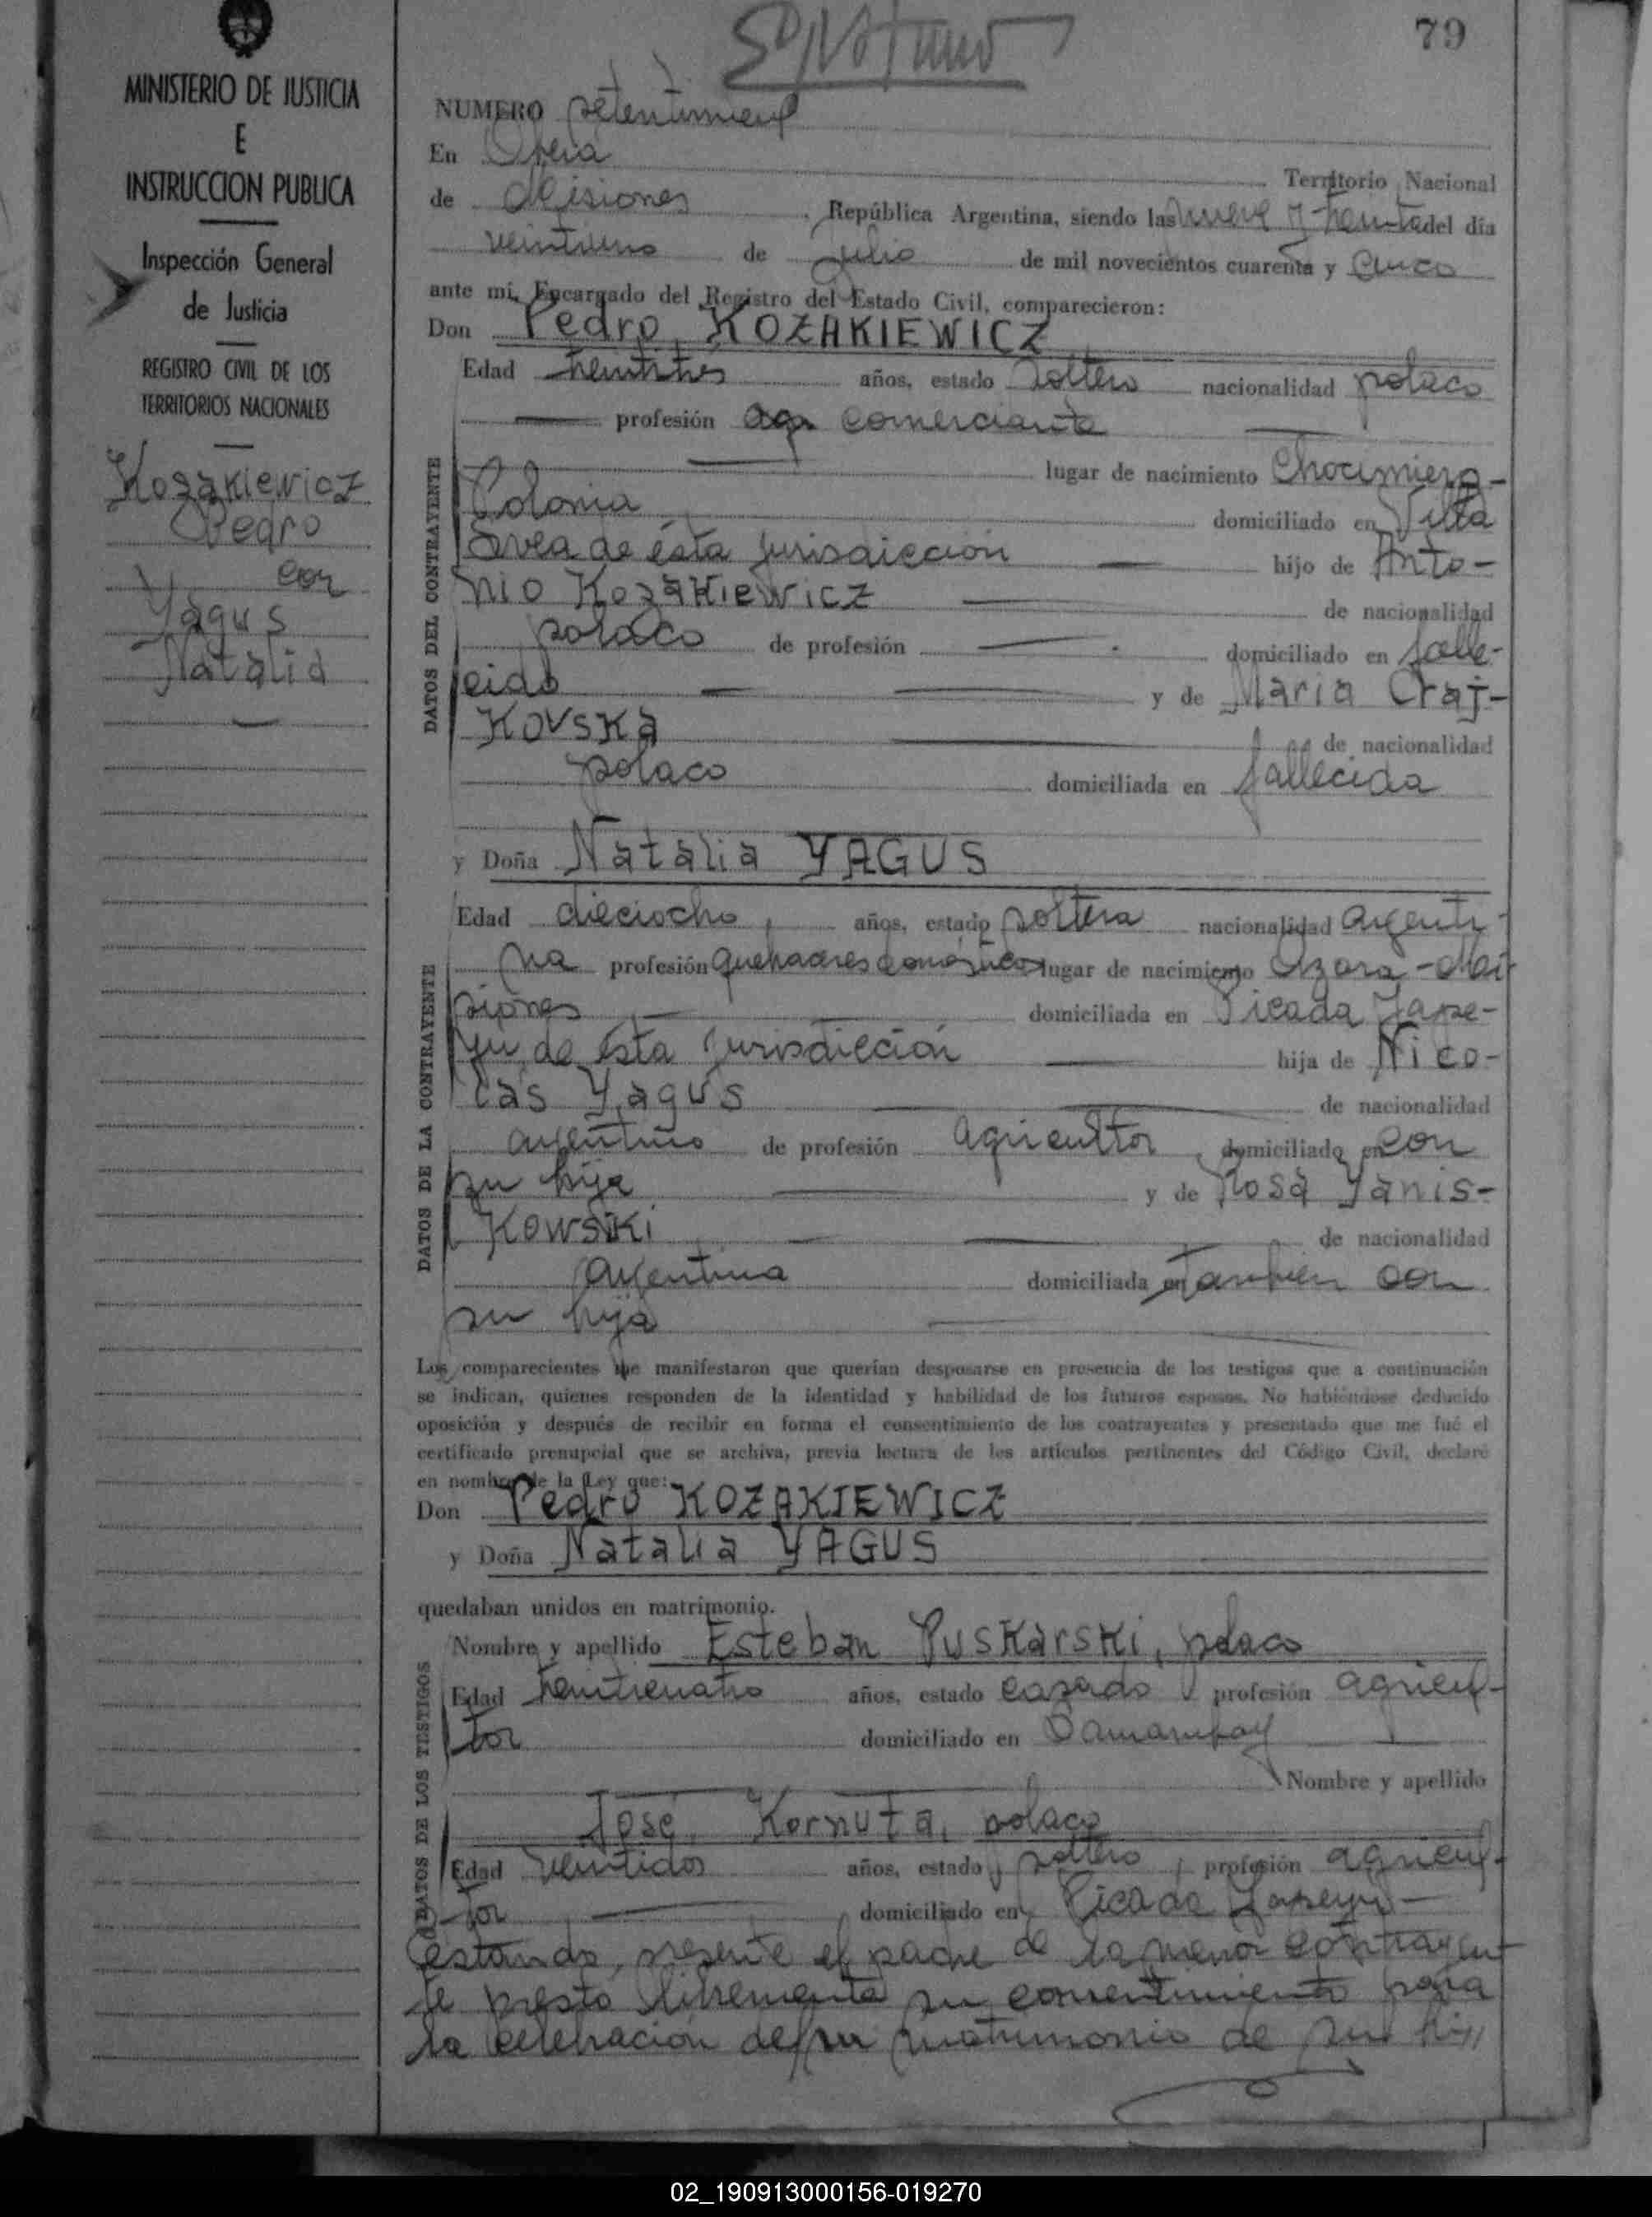 79
MINISTERIO DE JUSTICIA
E
INSTRUCCION PUBLICA
Inspección General
de Justicia
REGISTRO CIVIL DE LOS
TERRITORIOS NACIONALES
Kozakiewicz
Pedro
con
Yagus
Natalia
NUMERO setentinueve
En Oberá
Territorio Nacional
de Misiones República Argentina, siendo las nueve y treinta del día
veintiuno de julio de mil novecientos cuarenta y cinco
ante mi, Encargado del Registro del Estado Civil, comparecieron:
Don Pedro KOZAKIEWICZ
DATOS DEL CONTRAYENTE
Edad treintitrés años, estado soltero nacionalidad polaco
profesión comerciante
lugar de nacimiento
Colonia domiciliado en Villa
Svea de ésta jurisdicción hijo de Anto-
nio Kozakiewicz de nacionalidad
polaco de profesión domiciliado en falle-
cido y de Maria Craj-
Kovska de nacionalidad
polaco domiciliada en fallecida
y Doña Natalia YAGUS
DATOS DE LA CONTRAYENTE
Edad dieciocho, años, estado soltera nacionalidad argenti-
na profesión quehaceres domésticos lugar de nacimiento Azara - Mi-
siones domiciliada en Picada Yape-
yu de ésta jurisdicción hija de Nico-
lás Yagus de nacionalidad
argentino de profesión agricultor, domiciliado en con
su hija y de Rosa Yanis-
Kowski de nacionalidad
argentina domiciliada en también con
su hija
Los comparecientes me manifestaron que querían desposarse en presencia de los testigos que a continuación
se indican, quienes responden de la identidad y habilidad de los futuros esposos. No habiéndose deducido
oposición y después de recibir en forma el consentimiento de los contrayentes y presentado que me fué el
certificado prenupcial que se archiva, previa lectura de los artículos pertinentes del Código Civil, declaré
en nombre de la Ley que:
Don Pedro KOZAKIEWICZ
y Doña Natalia YAGUS
quedaban unidos en matrimonio.
DATOS DE LOS TESTIGOS
Nombre y apellido Esteban Puskarski, polaco
Edad treinticuatro años, estado casado profesión agricul-
tor domiciliado en
Nombre y apellido
José Kornuta, polaco
Edad veintidos años, estado soltero, profesión agricul-
tor domiciliado en Picada Yapeyu-
estando presente el padre de la menor contrayen-
te presto libremente su consentimiento para
la celebración de su matrimonio de su
02_190913000156-019270